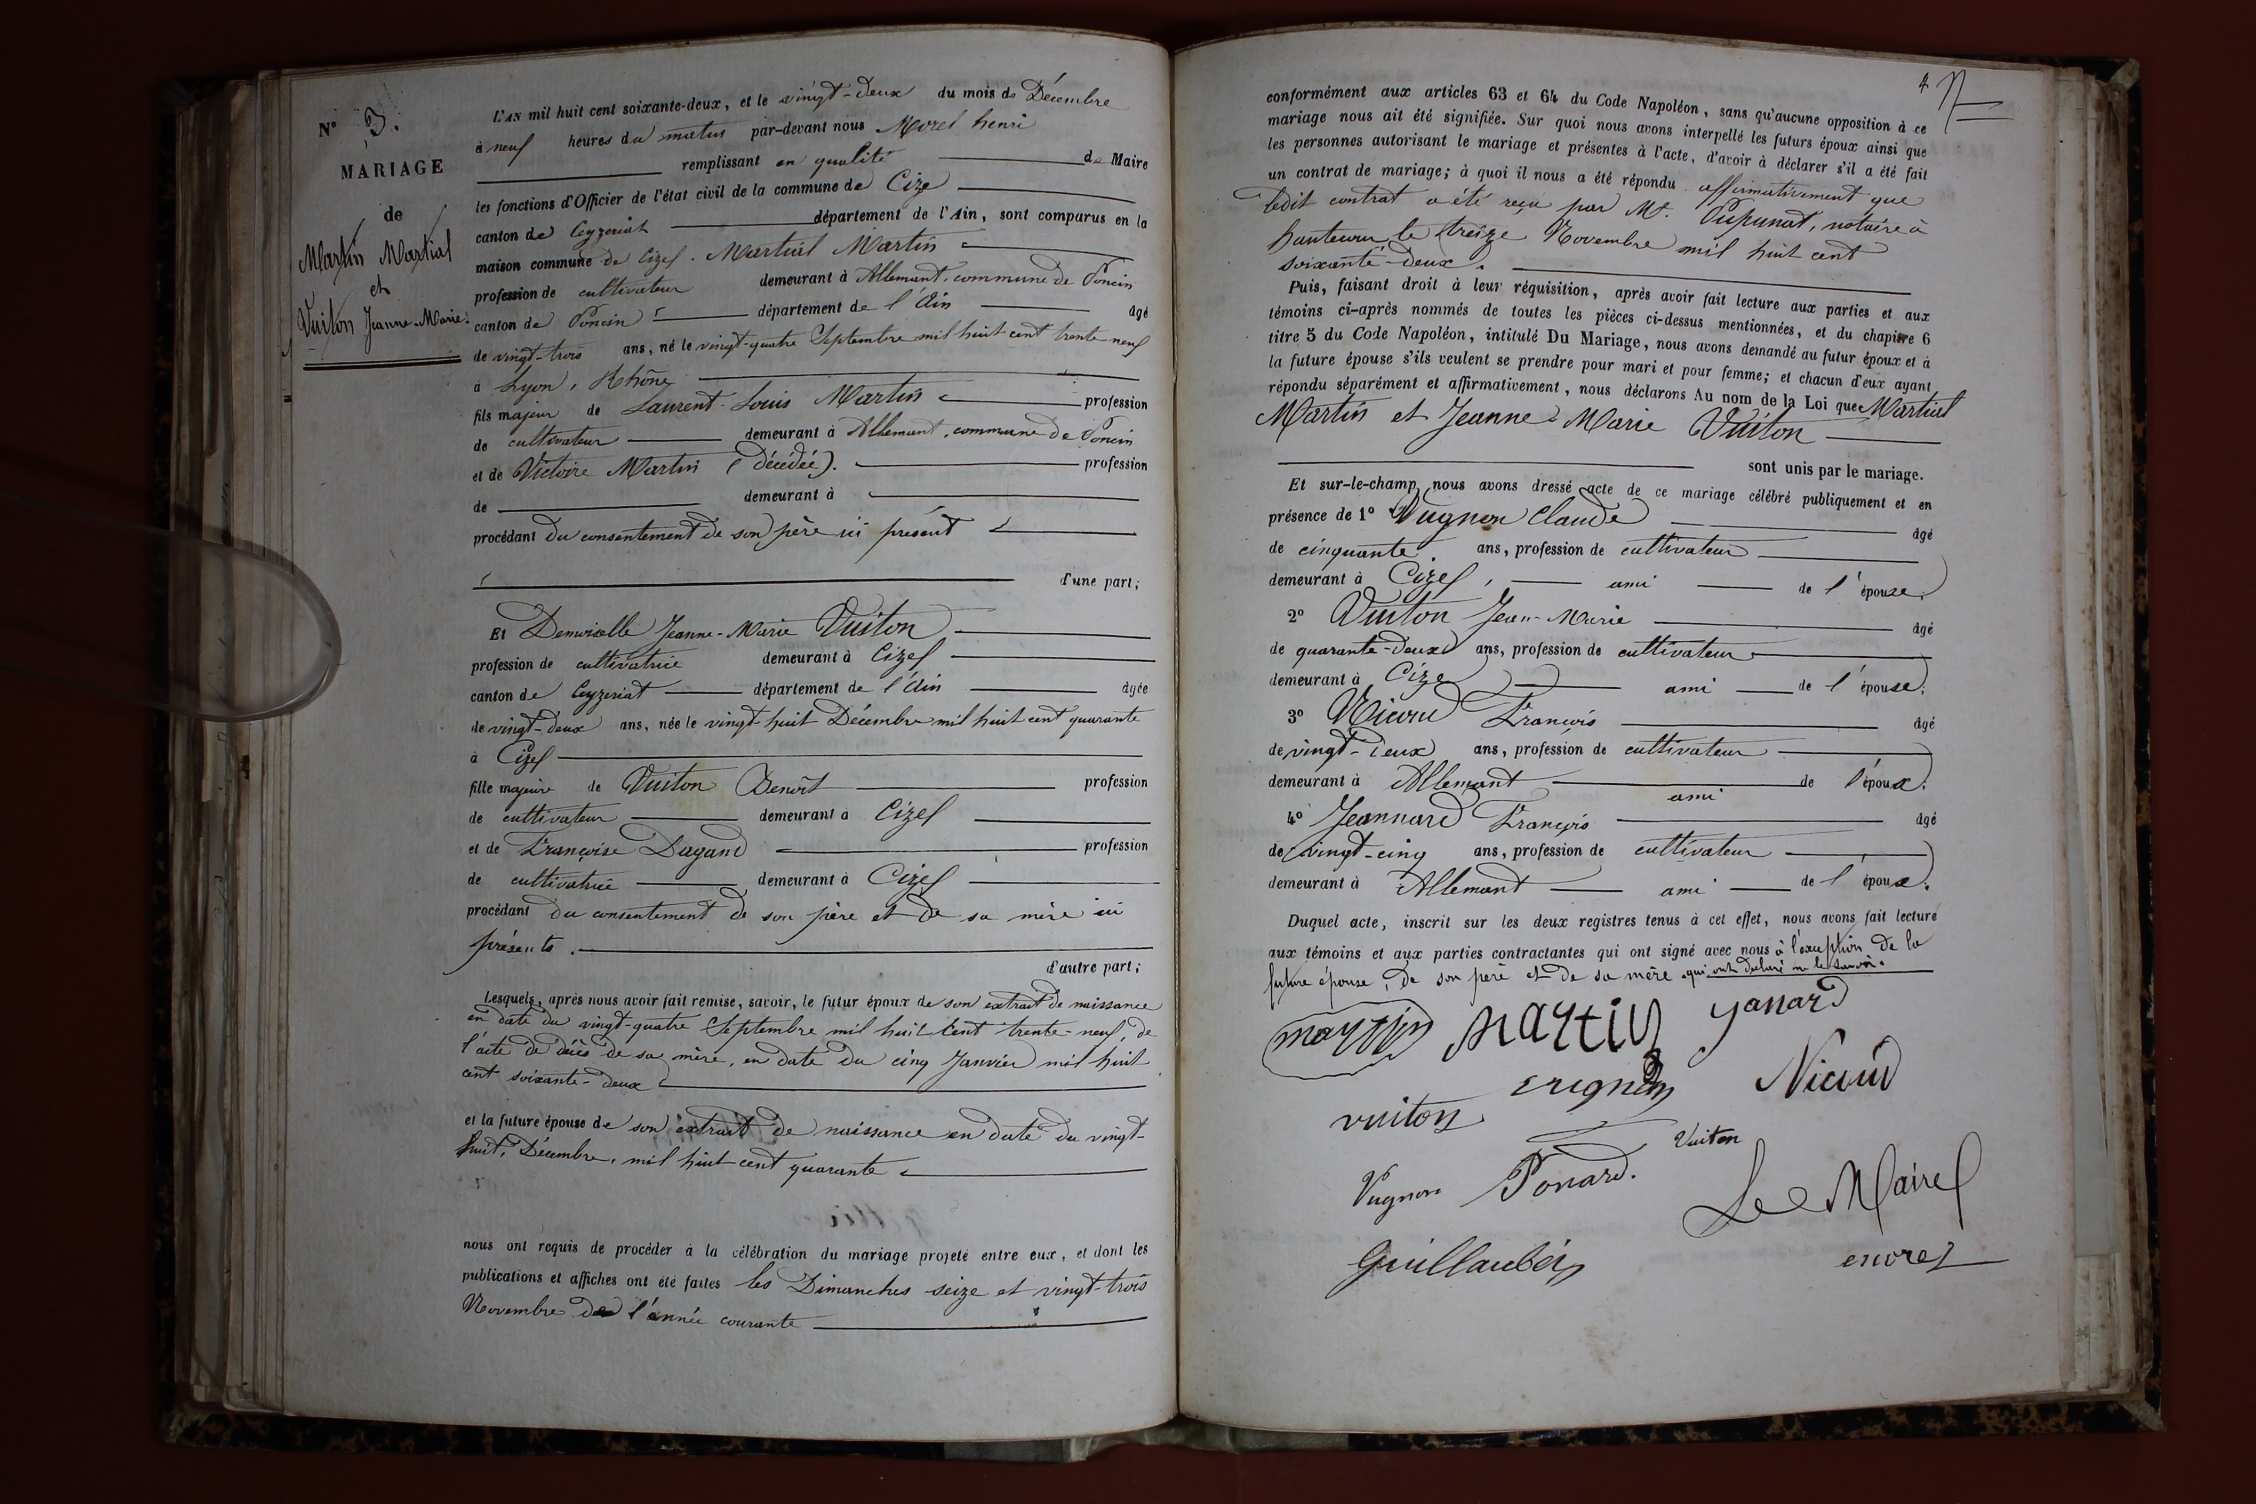 N° 3.
MARIAGE
de
Martin Martial
et
Vuiton Jeanne-Marie.
L'AN mil huit cent soixante-deux, et le vingt-deux du mois de Décembre
à neuf heures du matin par-devant nous Morel henri
remplissant en qualité de Maire
les fonctions d'Officier de l'état civil de la commune de Cize
canton de Ceyzeriat département de l'Ain, sont comparus en la
maison commune de Cize. Martial Martin
profession de cultivateur demeurant à Allemant, commune de Poncin
canton de Poncin département de l'Ain âgé
de vingt-trois ans, né le vingt-quatre Septembre mil huit cent trente neuf
à Lyon, Rhône
fils majeur de Laurent-Louis Martin profession
de cultivateur demeurant à Allemant, commune de Poncin
et de Victoire Martin (décédée). profession
de demeurant à
procédant du consentement de son père ici présent
d'une part;
Et Demoiselle Jeanne-Marie Vuiton
profession de cultivatrice demeurant à Cize
canton de Ceyzeriat département de l'Ain âgée
de vingt-deux ans, née le vingt-huit Décembre mil huit cent quarante
à Cize
fille majeure de Vuiton Benoît profession
de cultivateur demeurant à Cize
et de Françoise Dagand profession
de cultivatrice demeurant à Cize
procédant du consentement de son père et de sa mère ici
présents.
d'autre part;
Lesquels, après nous avoir fait remise, savoir, le futur époux de son extrait de naissance
en date du vingt-quatre Septembre mil huit cent trente-neuf, de
l'acte de décès de sa mère, en date du cinq Janvier mil huit
cent soixante-deux
et la future épouse de son extrait de naissance en date du vingt-
huit, Décembre, mil huit cent quarante
nous ont requis de procéder à la célébration du mariage projeté entre eux, et dont les
publications et affiches ont été faites les Dimanches seize et vingt-trois
Novembre de l'année courante
4
conformément aux articles 63 et 64 du Code Napoléon, sans qu'aucune opposition à ce
mariage nous ait été signifiée. Sur quoi nous avons interpellé les futurs époux ainsi que
les personnes autorisant le mariage et présentes à l'acte, d'avoir à déclarer s'il a été fait
un contrat de mariage; à quoi il nous a été répondu affirmativement que
ledit contrat a été reçu par Me. Pupunat, notaire à
hauteville le treize Novembre mil huit cent
soixante-deux.
Puis, faisant droit à leur réquisition, après avoir fait lecture aux parties et aux
témoins ci-après nommés de toutes les pièces ci-dessus mentionnées, et du chapitre 6
titre 5 du Code Napoléon, intitulé Du Mariage, nous avons demandé au futur époux et à
la future épouse s'ils veulent se prendre pour mari et pour femme; et chacun d'eux ayant
répondu séparément et affirmativement, nous déclarons Au nom de la Loi que Martial
Martin et Jeanne-Marie Vuiton
sont unis par le mariage.
Et sur-le-champ nous avons dressé acte de ce mariage célébré publiquement et en
présence de 1° Vugnon Claude âgé
de cinquante. ans, profession de cultivateur
demeurant à Cize, ami de l'épouse;
2° Vuiton Jean-Marie âgé
de quarante-deux ans, profession de cultivateur
demeurant à Cize ami de l'épouse;
3° Nicoud François âgé
de vingt-deux ans, profession de cultivateur
demeurant à Allemant ami de l'époux;
4° Jeannard François âgé
de vingt-cinq ans, profession de cultivateur
demeurant à Allemant ami de l'époux.
Duquel acte, inscrit sur les deux registres tenus à cet effet, nous avons fait lecture
aux témoins et aux parties contractantes qui ont signé avec nous à l'exception de la
future épouse, de son père et de sa mère qui ont déclaré ne le savoir.
martin martin janard
Nicoud
vuiton
Vuiton
Vugnon Ponard.
Le Maire
morel